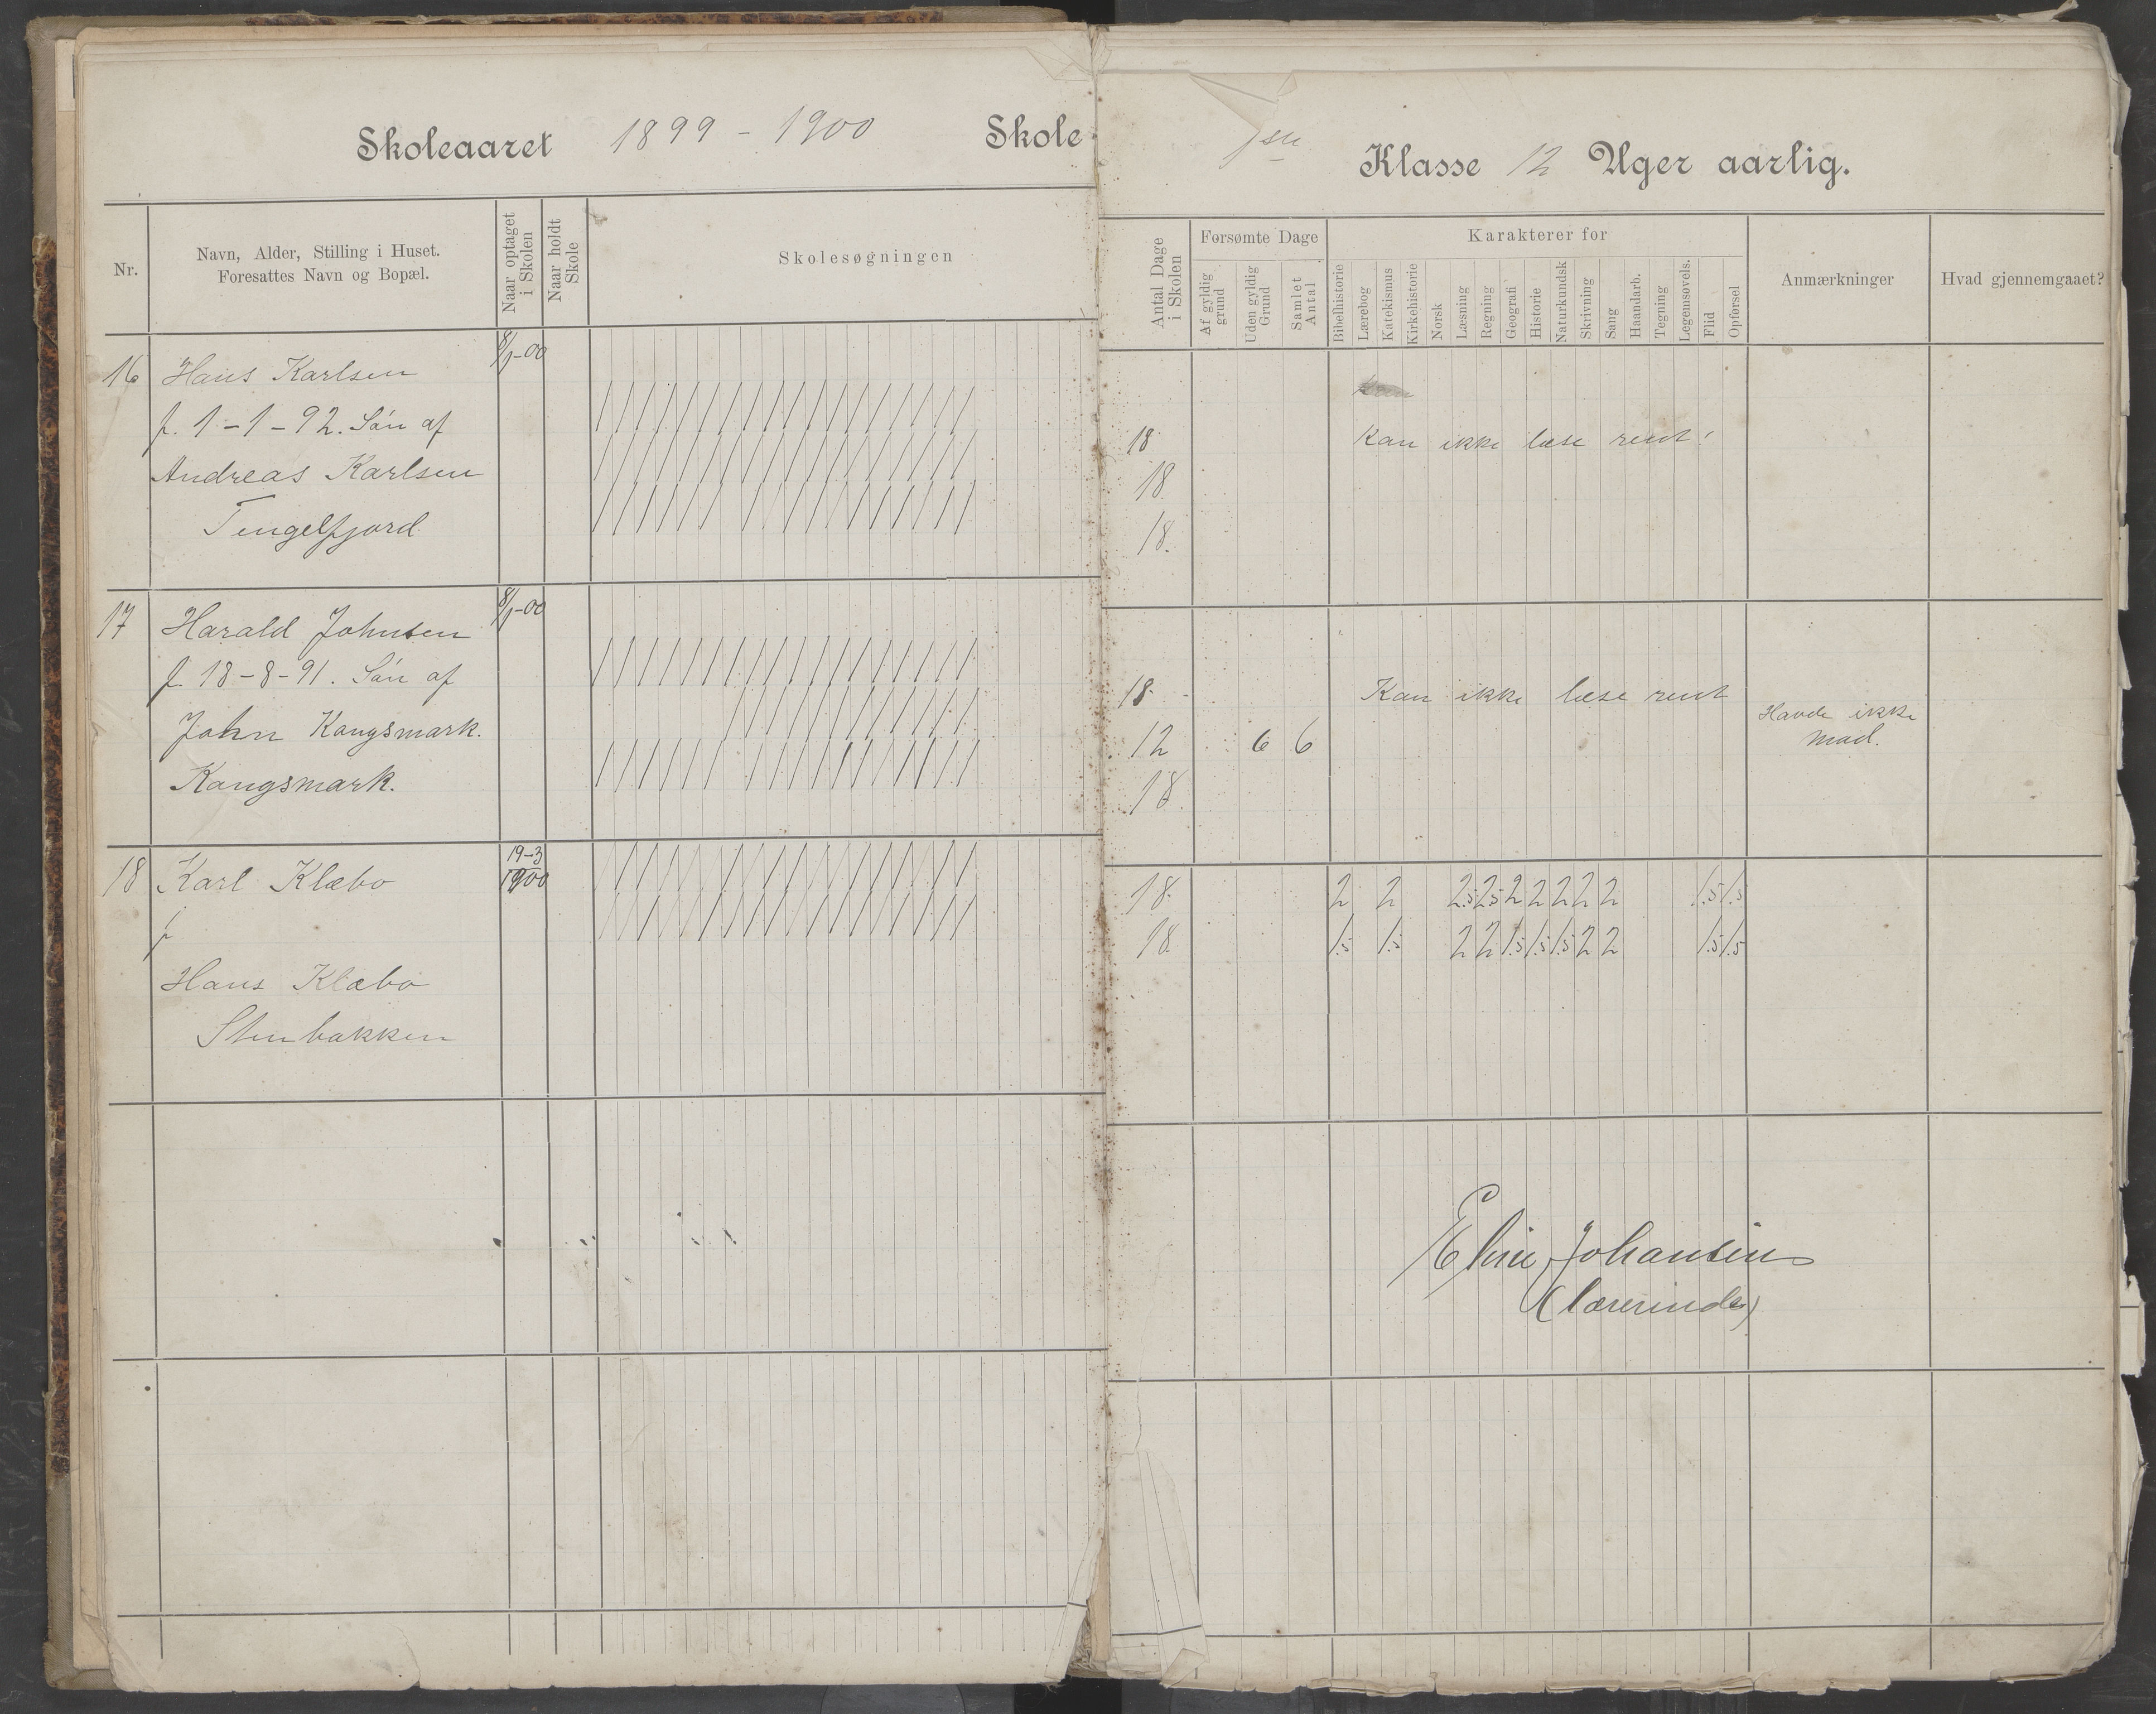 Skoleaaret 1899 - 1900 Skole
Nr.
Navn, Alder, Stilling i Huset.
Foresattes Navn og Bopæl.
Naar optaget
i Skolen
Naar holdt
Skole
Skolesøgningen
16 Hans Karlsen 8/1-00
f. 1-1-92. Søn af
Andreas Karlsen
Tengelfjord
17 Harald Johnsen 8/1-00
f. 18-8-91. Søn af
John Kongsmark.
Kongsmark.
18 Karl Klæbo 19-3
1900
f
Hans Klæbo
Stenbakken
Klasse 12 Uger aarlig.
Antal Dage
i Skolen
Forsømte Dage
Af gyldig
grund
Uden gyldig
Grund
Samlet
Antal
Karakterer for
Bibelhistorie
Lærebog
Katekismus
Kirkehistorie
Norsk
Læsning
Regning
Geografi
Historie
Naturkundsk
Skrivning
Sang
Haandarb.
Tegning
Legemsøvels.
Flid
Opførsel
Anmærkninger
Hvad gjennemgaaet?
18 Kan ikke læse rent!
18
18.
18. Kan ikke læse rent
12 6 6 Havde ikke
mad.
18.
18. 2 2 2.5 2.5 2 2 2 2 2 1.5 1.5
18. 1.5 1.5 2 2 1.5 1.5 1.5 2 2 1.5 1.5
Johansen
(lærerinde)